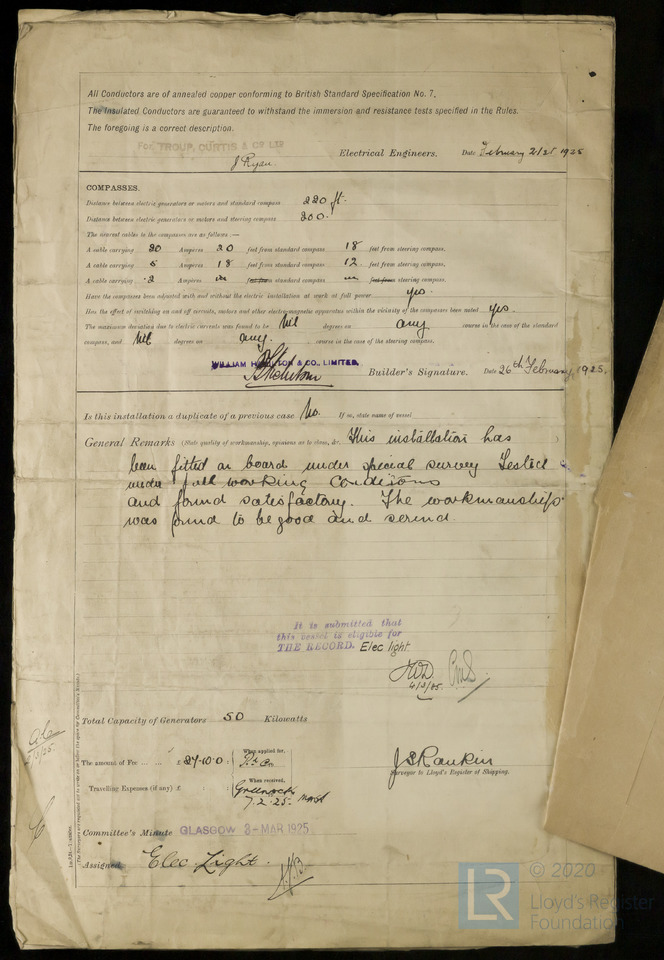 All Conductors are of annealed copper conforming to British Standard Specification No. 7.
The Insulated Conductors are guaranteed to withstand the immersion and resistance tests specified in the Rules.
The foregoing is a correct description.
For TROUP, CURTIS & Co Ltd
J Ryan Electrical Engineers. Date February 21st 1925
COMPASSES.
Distance between electric generators or motors and standard compass 220 ft.
Distance between electric generators or motors and steering compass 200.
The nearest cables to the compasses are as follows :—
A cable carrying 20 Ampères 20 feet from standard compass 18 feet from steering compass.
A cable carrying 5 Ampères 18 feet from standard compass 12 feet from steering compass.
A cable carrying .2 Ampères in feet from standard compass in feet from steering compass.
Have the compasses been adjusted with and without the electric installation at work at full power yes.
Has the effect of switching on and off circuits, motors and other electro-magnetic apparatus within the vicinity of the compasses been noted yes.
The maximum deviation due to electric currents was found to be Nil degrees on any course in the case of the standard
compass, and Nil degrees on any. course in the case of the steering compass.
WILLIAM HAMILTON & CO., LIMITED.
Builder's Signature. Date 26th February, 1925.
Is this installation a duplicate of a previous case No. If so, state name of vessel
General Remarks (State quality of workmanship, opinions as to class, &c. This installation has
been fitted on board under special survey Tested
under full working condisons
and found satisfactory. The workmanship
was found to be good and
It is submitted that
this vessel is eligible for
THE RECORD. Elec light.
4/3/25.
Total Capacity of Generators 50 Kilowatts
The amount of Fee ... ... £ 27.10.0 : When applied for,
J S Rankin
Surveyor to Lloyd's Register of Shipping.
Travelling Expenses (if any) £ : When received,
Greenock
7.2.25.
Committee's Minute GLASGOW 3-MAR 1925
Assigned Elec. Light.
© 2020
LR
Lloyd's Register
Foundation